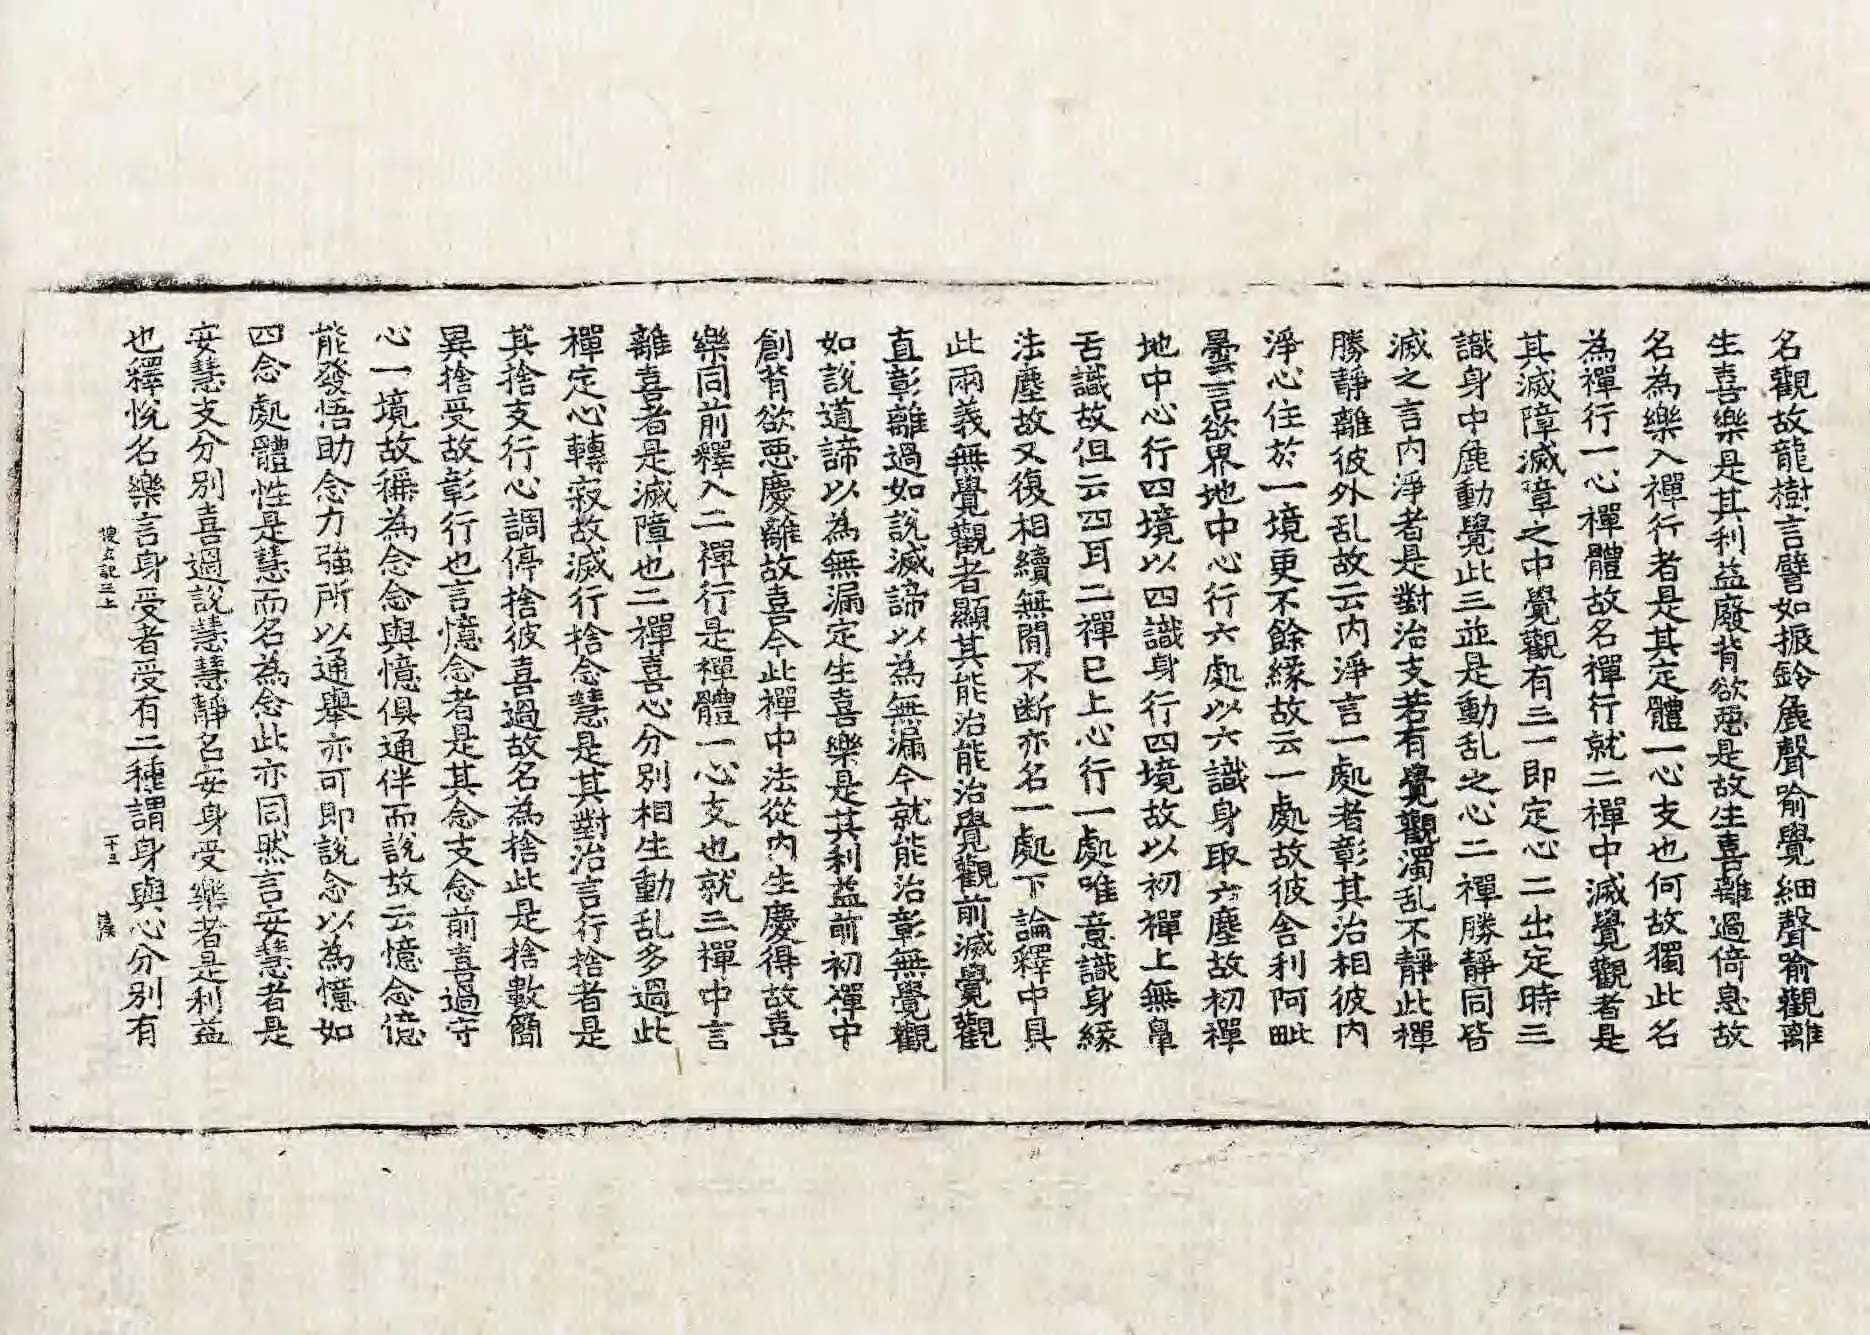 名觀故龍樹言譬如振鈴麁聲喻覺細聲喻觀離
生喜樂是其利益廢背欲惡是故生喜離過倚息故
名為樂入禪行者是其定體一心支也何故獨此名
為禪行一心禪體故名禪行就二禪中滅覺觀者是
其滅障滅章之中覺觀有三一即定心二出定時三
識身中麁動覺此三並是動乱之心二禪勝靜同皆
滅之言內淨者是對治支若有覺觀濁乱不靜此禪
勝靜離彼外乱故云內淨言一處者彰其治相彼內
淨心住於一境更不餘緣故云一處故彼舍利阿毗
曇言欲界地中心行六處以六識身取六塵故初禪
地中心行四境以四識身行四境故以初禪上無鼻
舌識故但云四耳二禪已上心行一處唯意識身緣
法塵故又復相續無間不断亦名一處下論釋中具
此兩義無覺觀者顯其能治能治覺觀前滅覺觀
直彰離過如說滅諦以為無漏今就能治彰無覺觀
如說道諦以為無漏定生喜樂是其利益前初禪中
創背欲惡慶離故喜今此禪中法從內生慶得故喜
樂同前釋入二禪行是禪體一心支也就三禪中言
離喜者是滅障也二禪喜心分別相生動乱多過此
禪定心轉寂故滅行捨念慧是其對治言行捨者是
其捨支行心調停捨彼喜過故名為捨此是捨數簡
異捨受故彰行也言憶念者是其念支念前喜過守
心一境故稱為念念與憶俱通伴而說故云憶念憶
能發悟助念力強所以通舉亦可即說念以為憶如
四念處體性是慧而名為念此亦同然言安慧者是
安慧支分別喜過說慧慧靜名安身受樂者是利益
也釋悅名樂言身受者受有二種謂身與心分別有
記三上 十三